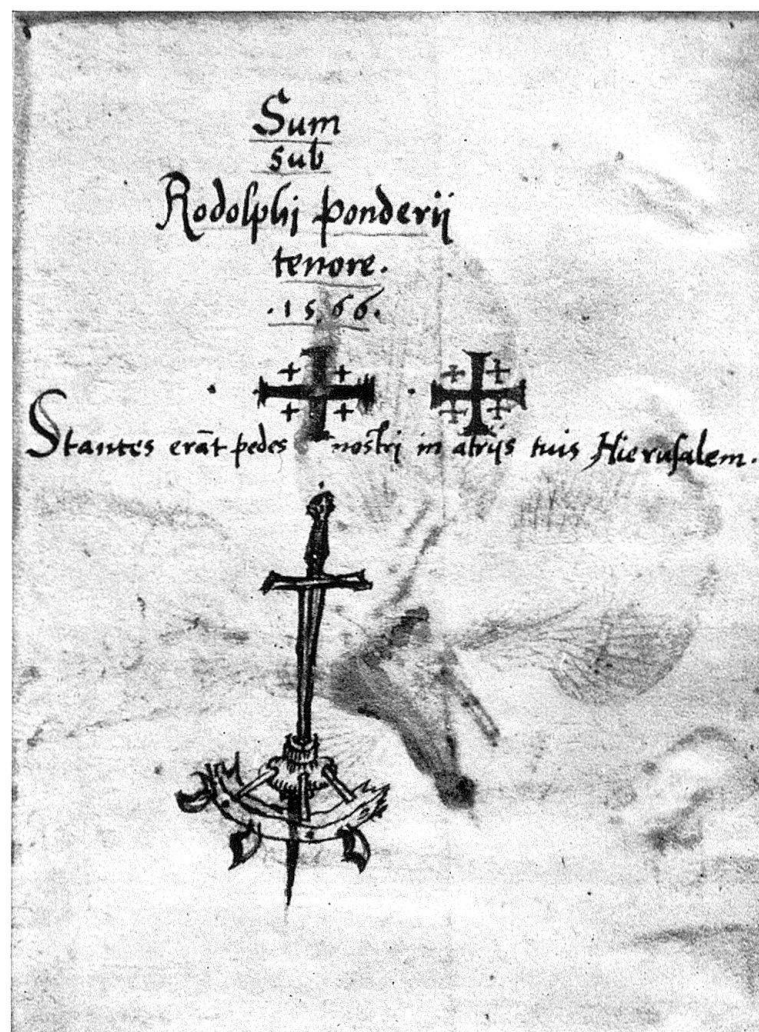 Sum
sub
Rodolphi Ponderij
tenore.
.1566.
Stantes erāt pedes nostri in atrijs tuis Hierusalem.